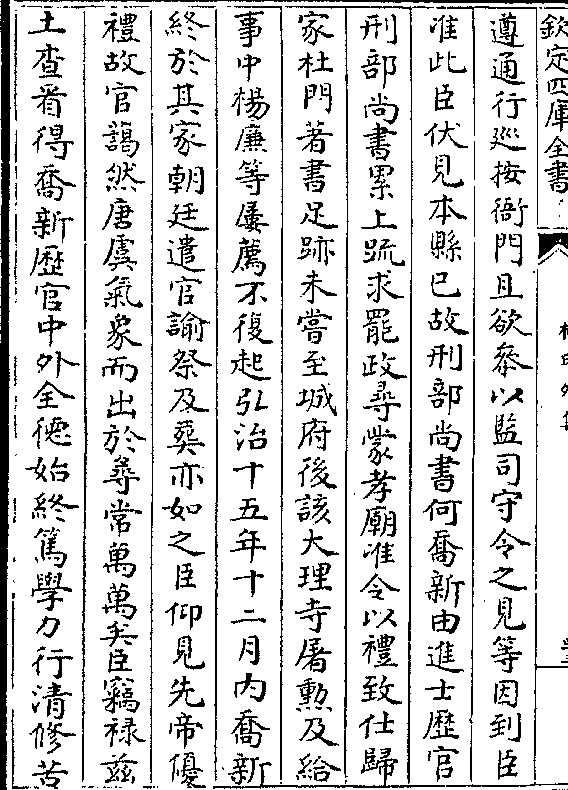 欽定四庫全書
遵通行巡按衙門且欲叅以監司守令之見等因到臣
准此臣伏見本縣已故刑部尚書何喬新由進士歴官
刑部尚書累上疏求罷政尋蒙孝廟准令以禮致仕歸
家杜門著書足跡未嘗至城府後該大理寺屠勲及給
事中楊廉等屢薦不復起弘治十五年十二月内喬新
終於其家朝廷遣官諭祭及葬亦如之臣仰見先帝優
禮故官藹然唐虞氣象而出於尋常萬萬矣臣竊禄兹
土查看得喬新歴官中外全德始終篤學力行清修苦